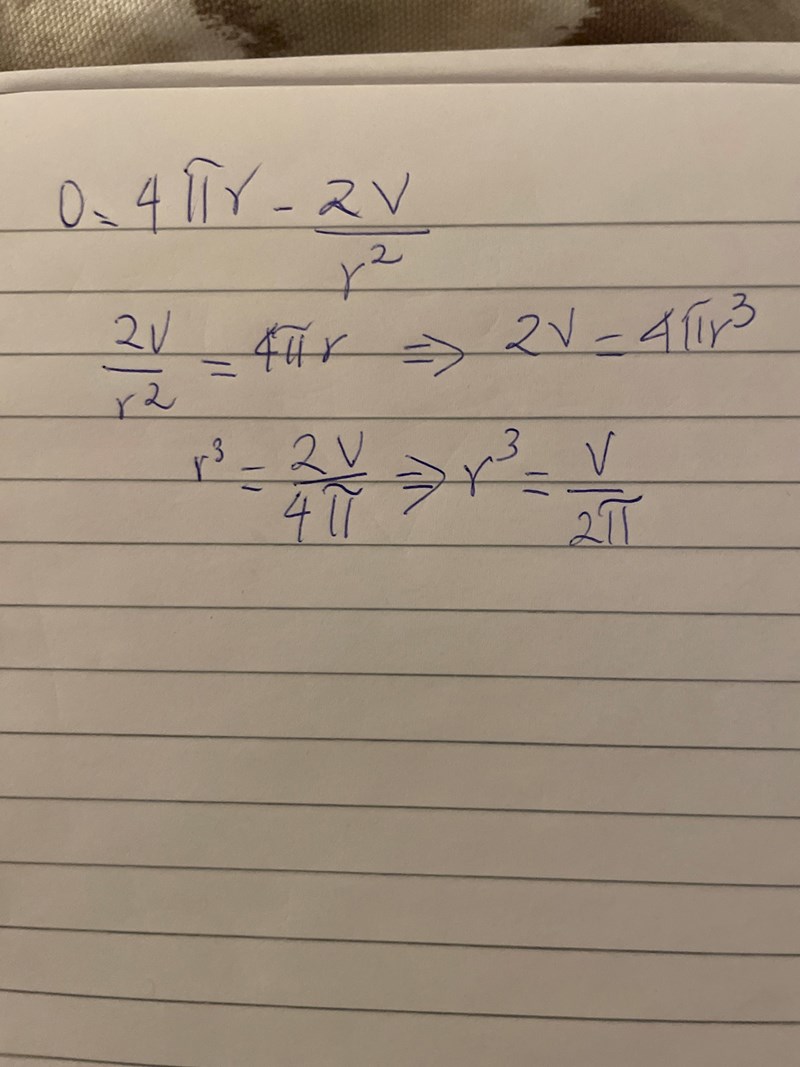 0 = 4πr - 2V/r²
2V/r² = 4πr ⇒ 2V = 4πr³
r³ = 2V/4π ⇒ r³ = V/2π